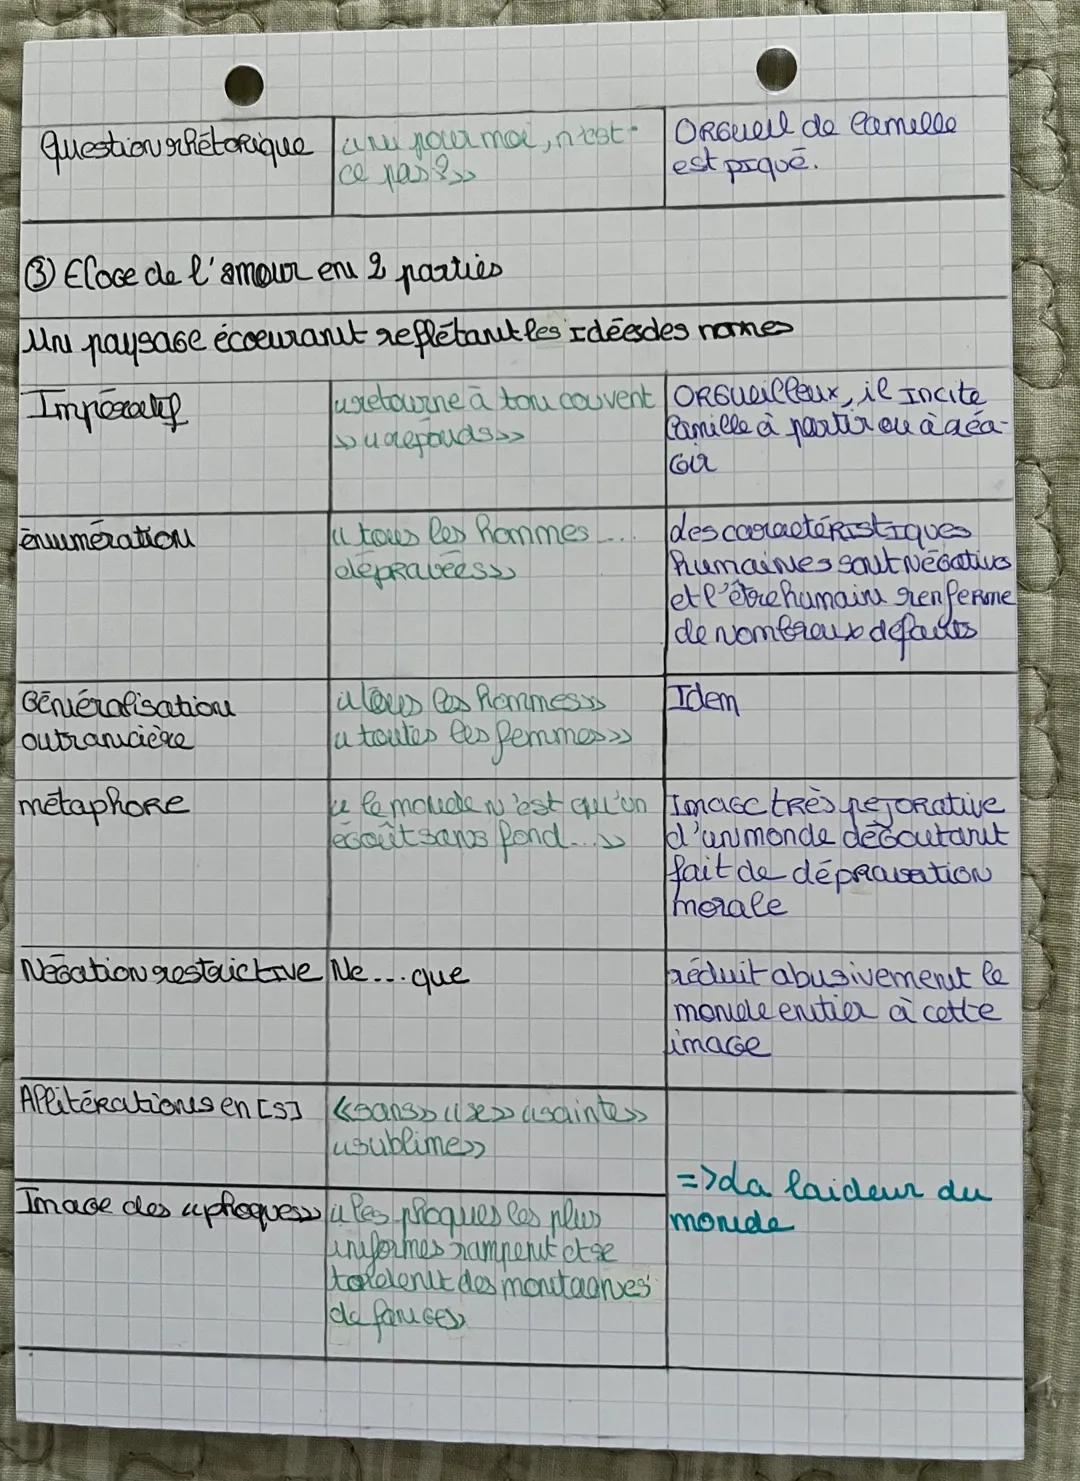 Question rhétorique
«un pour moi, n'est-
ce pas?»
ORGueil de Camille
est piqué.
③ Eloge de l'amour en 2 parties
Un paysage écoeurant reflétant les Idées des nonnes
Impératif
«retourne à ton couvent
» «réponds»
ORGueilleux, il Incite
Camille à partir ou à réa-
Gir
énumération
«tous les hommes ...
dépravées»
des caractéRIstIques
humaines sont Négatives
et l'être humain renferme
de nombreux défauts
Généralisation
outrancière
«tous les hommes»
«toutes les femmes»
Idem
métaphore
«le monde n'est qu'un
égoût sans fond...»
Image tRès péjorative
d'un monde dégoutant
fait de dépravation
morale
Négation restrictive
Ne...que
réduit abusivement le
monde entier à cette
image
Allitérations en [s]
«sans» «se» «sainte»
«sublime»
Image des «phoques»
«les phoques les plus
informes rampent et se
tordent des montagnes
de fanges»
=> La laideur du
monde